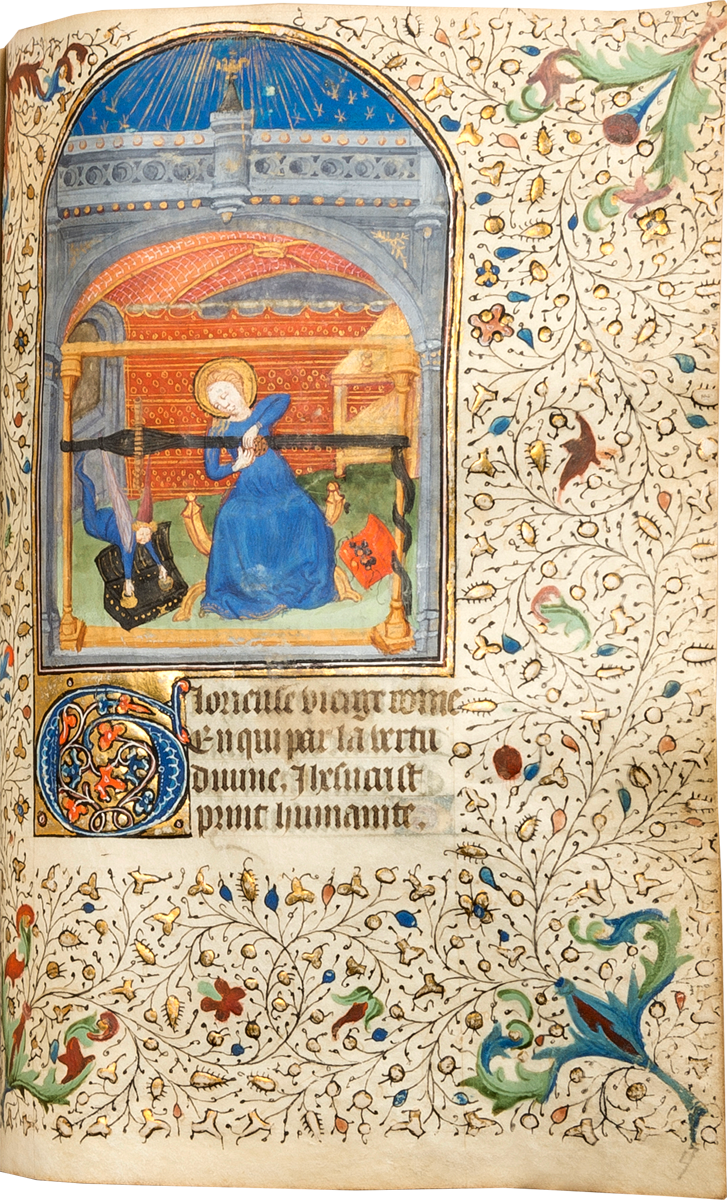 Glorieuse vierge roine
En qui par la vertu
diuine. Ihesucrist
print humanite.